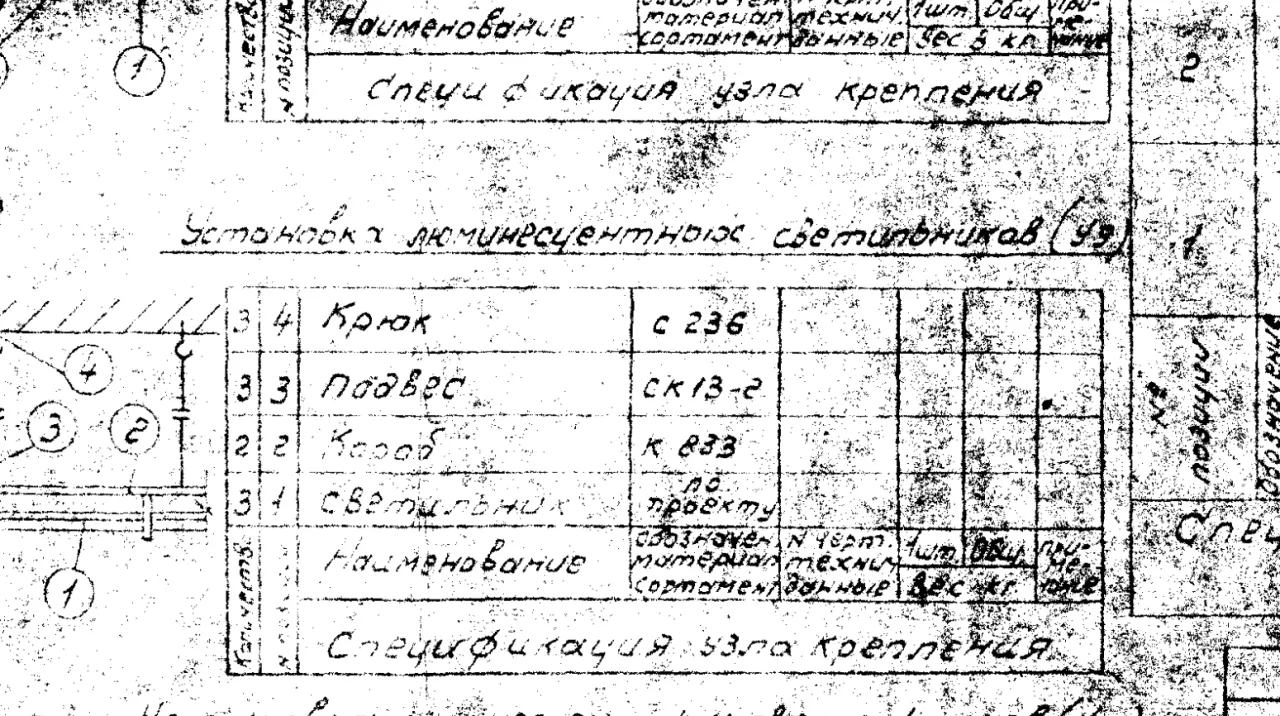 Наименование
материал
сортамент
технич.
данные
1шт
Общ
Вес в кг
При-
ме-
чание
N позиции
1
Спецификация узла крепления
2
1
№ позиции
Обозначение
Установка люминесцентных светильников (У9)
3 4 Крюк с 236
3 3 Подвес ск 13-2
2 2 Короб к 833
3 1 Светильник по
проекту
Количеств.
Наименование
обозначен.
материал
сортамент
N черт.
технич
данные
1шт.
Общ.
Вес кг
При-
ме-
Спецификация узла крепления
4
3
2
1
Спец